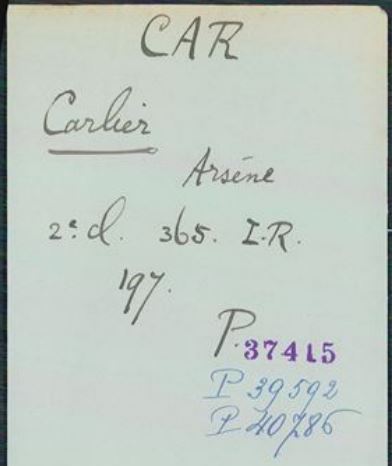 CAR
Carlier
Arsène
2e cl. 365. I.R.
197.
P. 37415
P 39592
P 40786